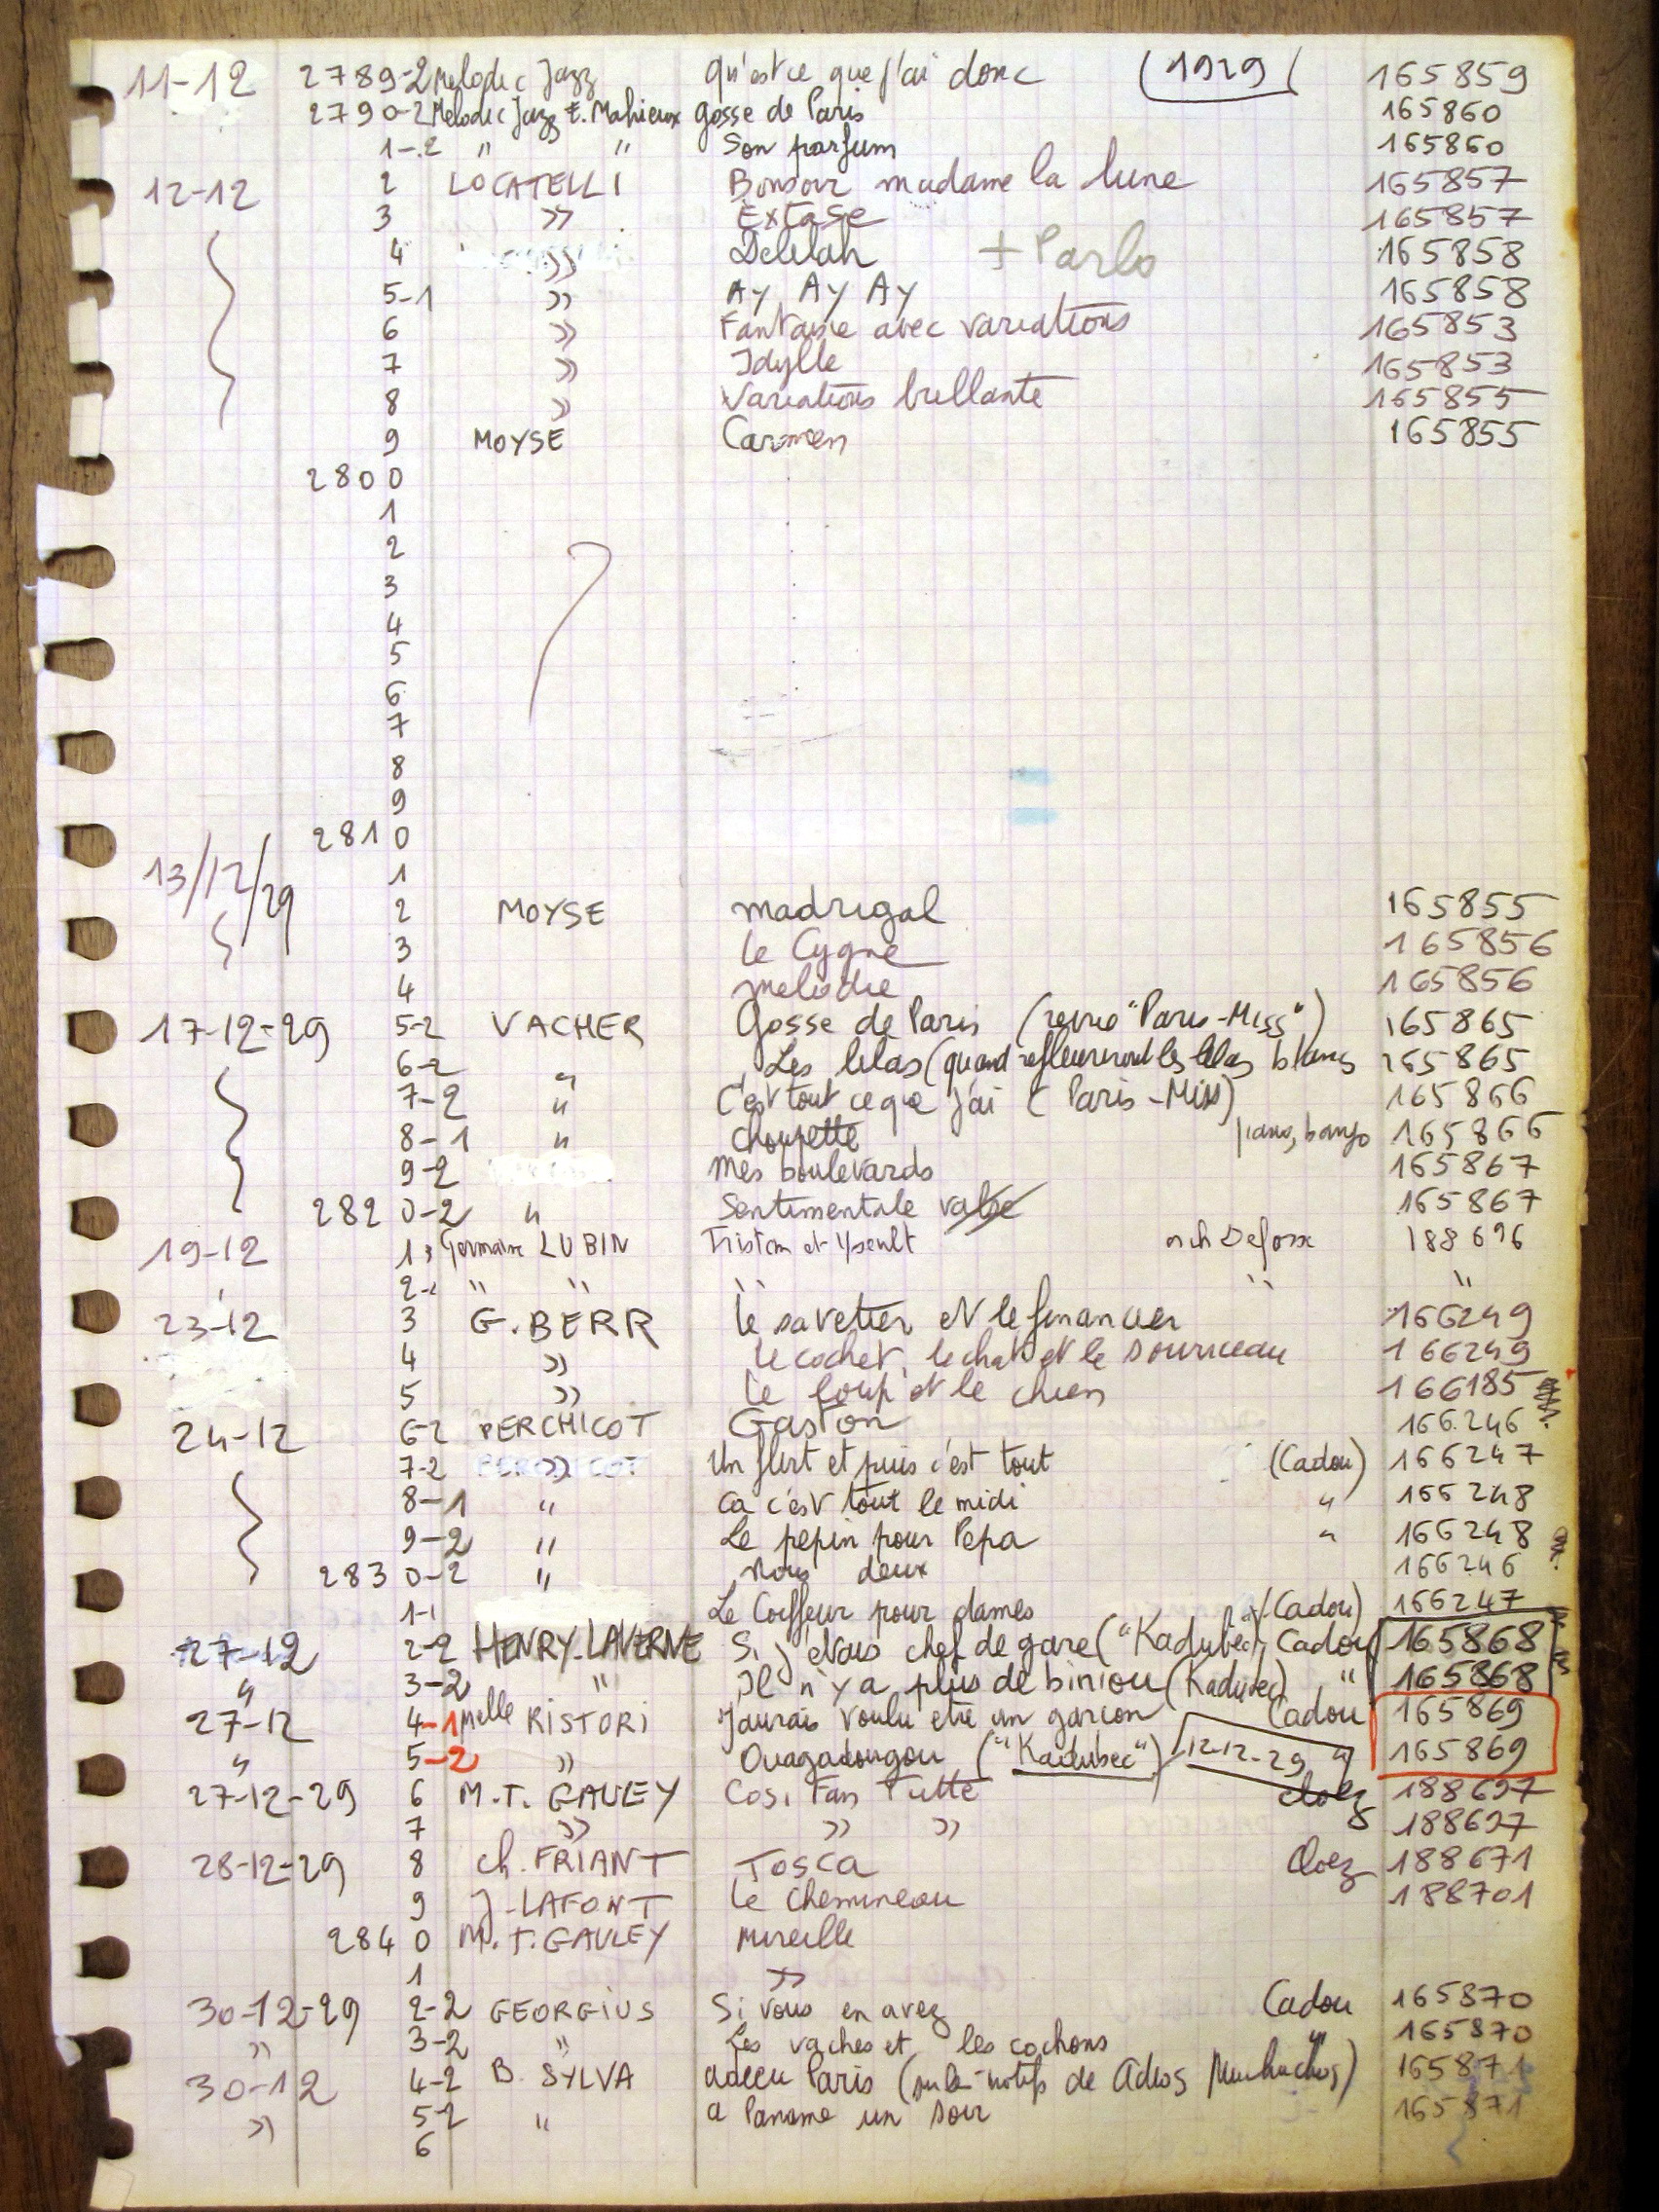 11-12 2789-2 Melodic Jazz Qu'est ce que j'ai donc (1929) 165859
2790-2 Melodic Jazz E. Mahieux Gosse de Paris 165860
1-2 " " Son parfum 165860
12-12 2 LOCATELLI Bonsoir madame la lune 165857
3 » Extase 165857
4 » Delilah + Parlo 165858
5-1 » AY AY AY 165858
6 » Fantaisie avec variations 165853
7 » Idylle 165853
8 » Variations brillante 165855
9 MOYSE Carmen 165855
2800
1
2
3
4
5
6
7
8
9
2810
13/12/29 1
2 MOYSE madrigal 165855
3 le Cygne 165856
4 melodie 165856
17-12-29 5-2 VACHER Gosse de Paris (revue "Paris-Miss") 165865
6-2 " Les lilas (quand refleuriront les lilas blancs 165865
7-2 " C'est tout ce que j'ai (Paris-Miss) 165866
8-1 " Choupette piano, banjo 165866
9-2 mes boulevards 165867
2820-2 " Sentimentale valse 165867
19-12 1 Germaine LUBIN Tristan et Yseult orch Defosse 188696
2-1 " " " " "
23-12 3 G. BERR le savetier et le financier 166249
4 » le cochet, le chat et le souriceau 166249
5 » le loup et le chien 166185
24-12 6-2 PERCHICOT Gaston 166246
7-2 » Un flirt et puis c'est tout (Cadou) 166247
8-1 " Ca c'est tout le midi " 166248
9-2 " Le pepin pour Pepa " 166248
2830-2 " Nous deux 166246
1-1 Le Coiffeur pour dames (Cadou) 166247
27-12 2-2 HENRY-LAVERNE Si j'étais chef de gare ("Kadubec") Cadou 165868
" 3-2 " Il n'y a plus de biniou (Kadubec) " 165868
27-12 4-1 Melle RISTORI J'aurais voulu etre un garcon Cadou 165869
" 5-2 » Ouagadougou ("Kadubec") 12-12-29 " 165869
27-12-29 6 M.T. GAULEY Cosi Fan Tutte Cloez 188697
7 » » » 188697
28-12-29 8 Ch. FRIANT Tosca Cloez 188671
9 J. LAFONT le chemineau 188701
2840 M.T. GAULEY Mireille
1 »
30-12-29 2-2 GEORGIUS Si vous en avez Cadou 165870
» 3-2 » Les vaches et les cochons " 165870
30-12 4-2 B. SYLVA adieu Paris (sur les motifs de Adios Muchachos) 165871
» 5-2 " a Paname un soir 165871
6